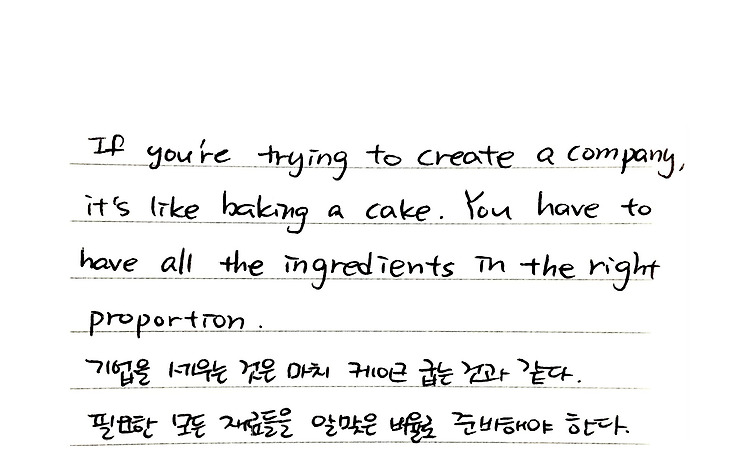 If you're trying to create a company,
it's like baking a cake. You have to
have all the ingredients in the right
proportion.
기업을 세우는 것은 마치 케이크 굽는 것과 같다.
필요한 모든 재료들을 알맞은 비율로 준비해야 한다.